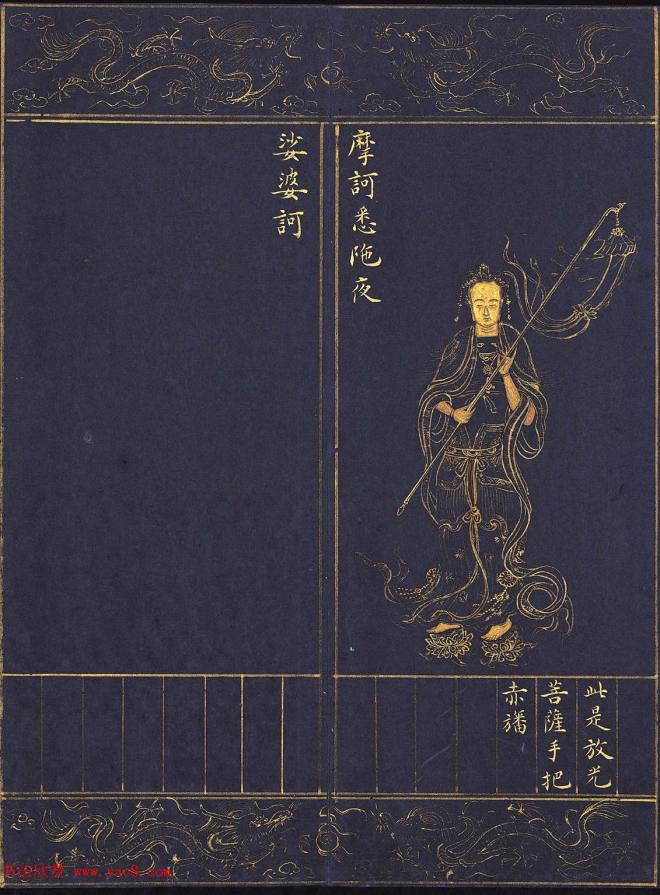 摩訶悉陁夜
娑婆訶
此是放光
菩薩手把
赤旛
书法欣赏 www.yac8.com